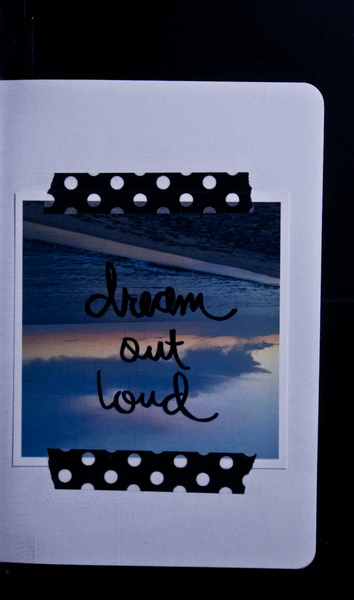 dream
out
loud